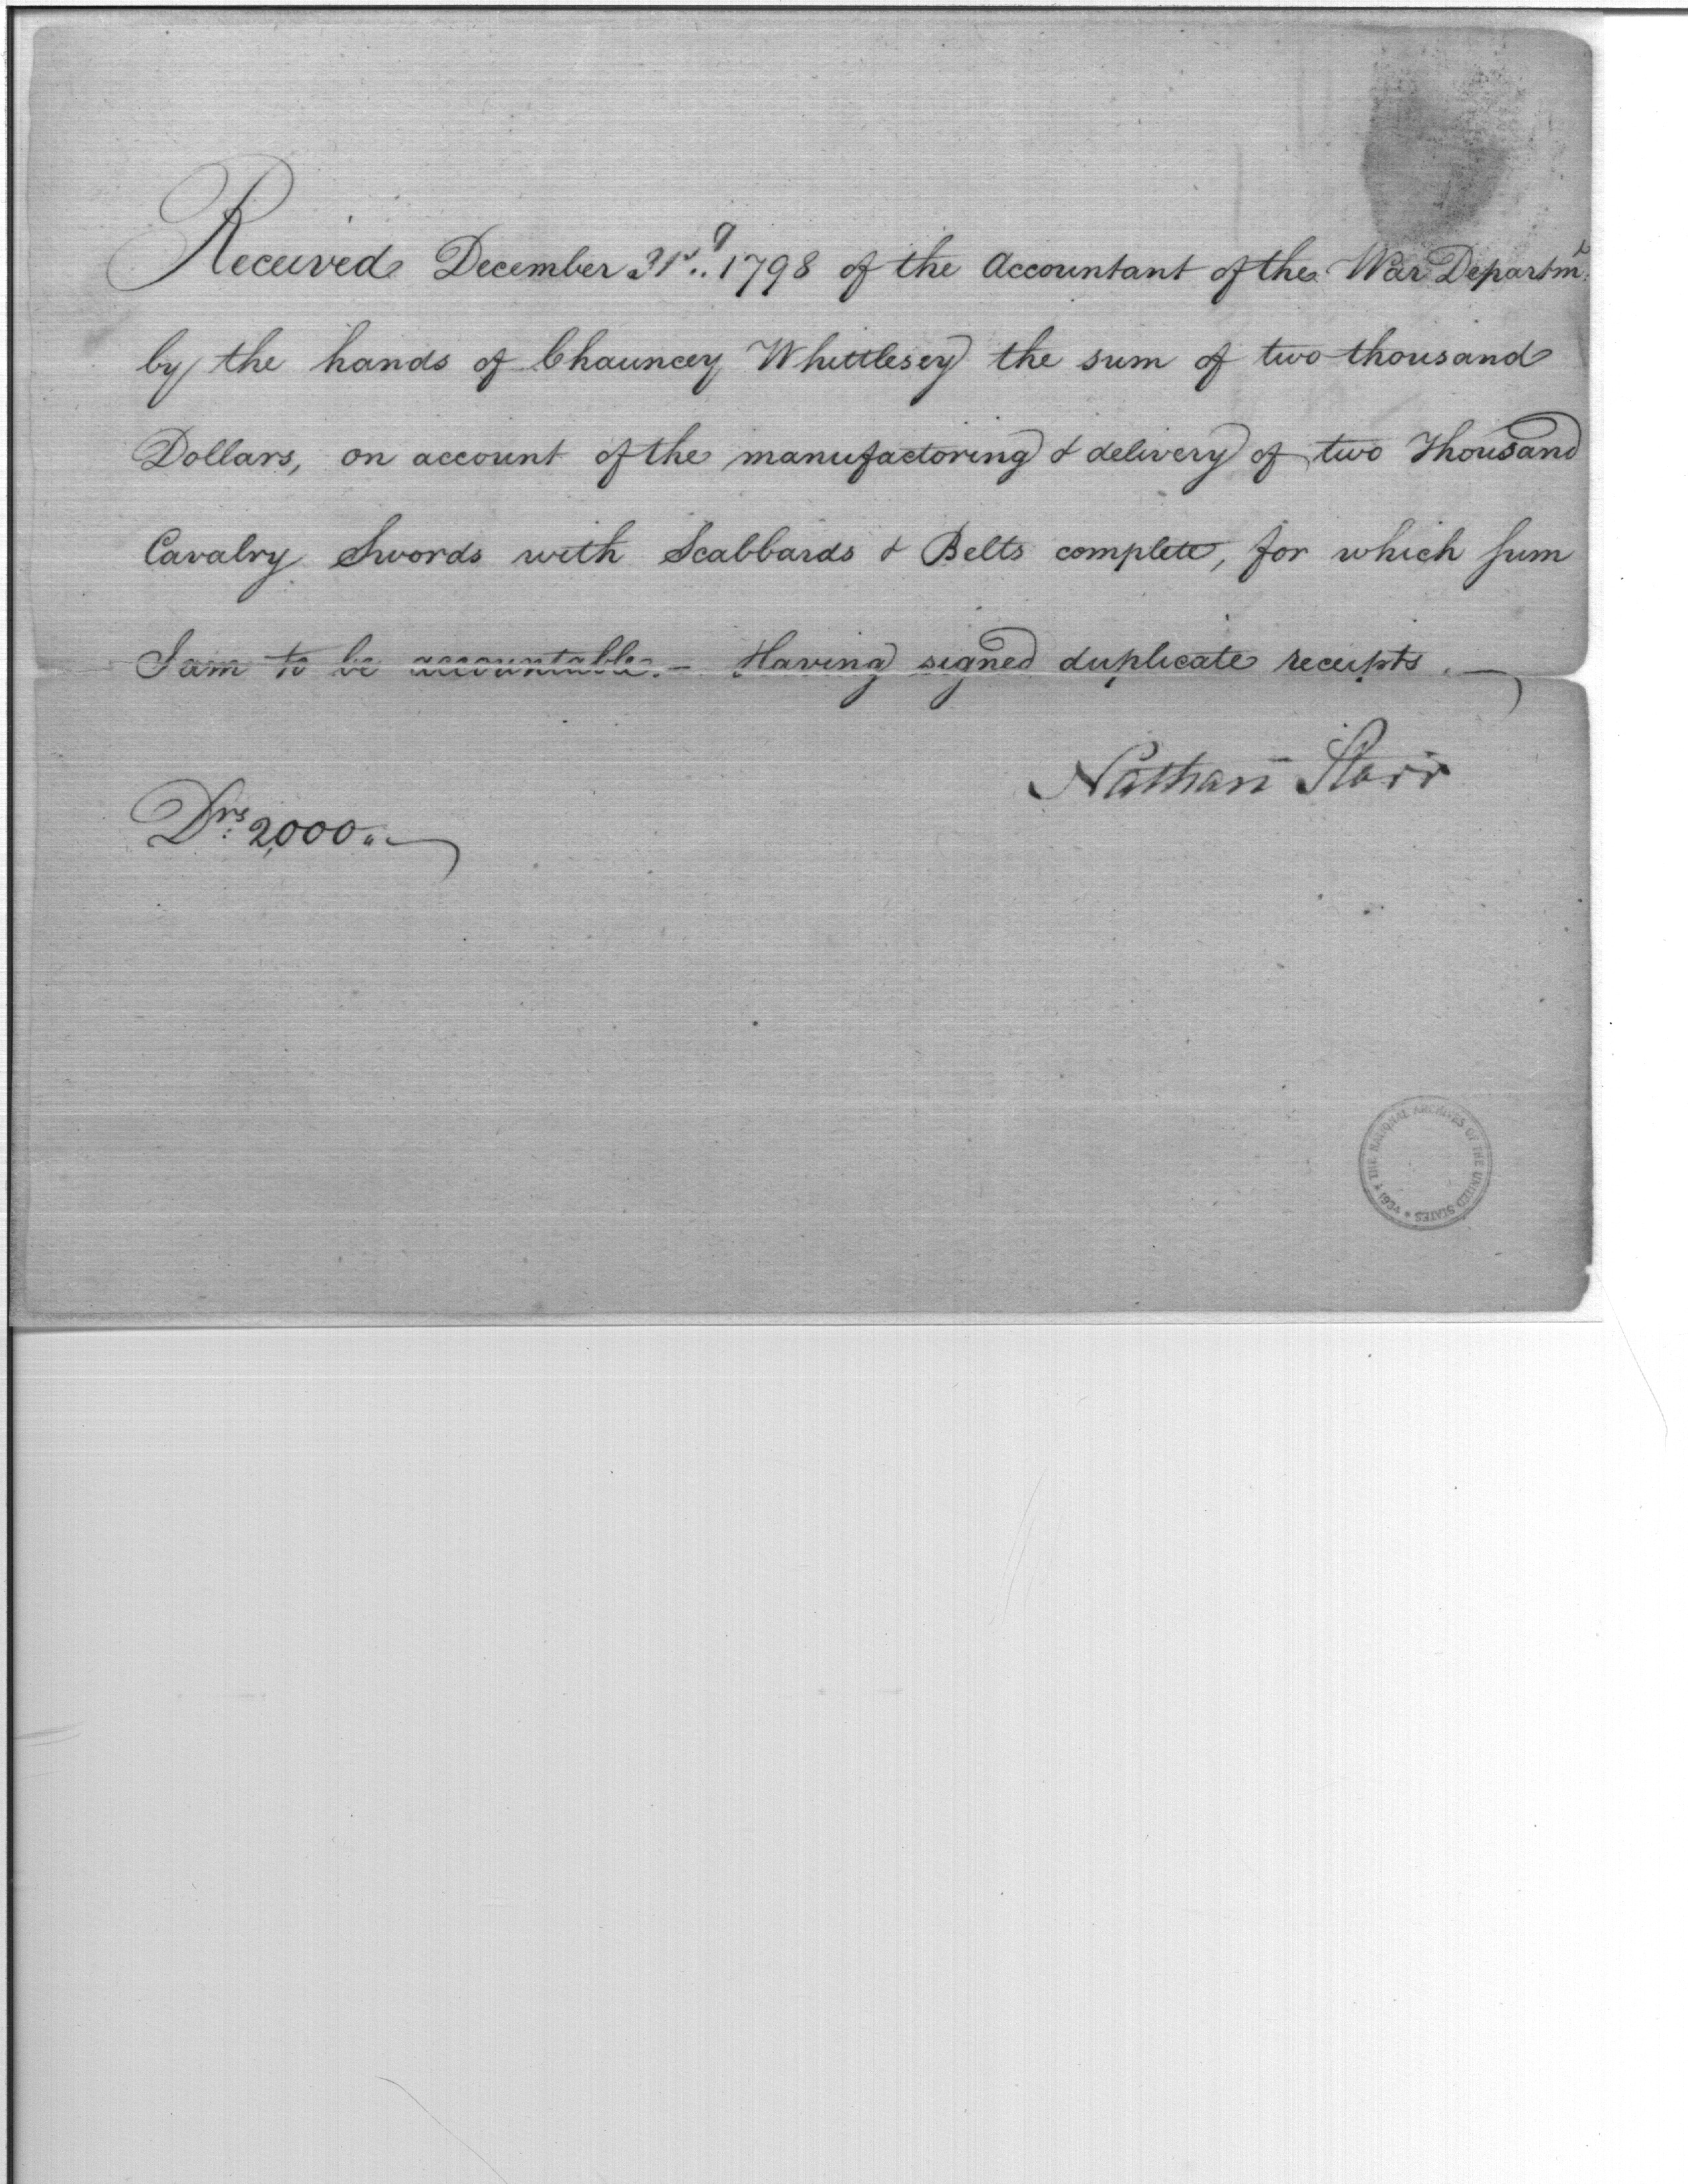 Received December 31st. 1798 of the Accountant of the War Departmt.
by the hands of Chauncey Whittlesey the sum of two thousand
Dollars, on account of the manufactoring & delivery of two Thousand
Cavalry Swords with Scabbards & Belts complete, for which sum
I am to be accountable. – Having signed duplicate receipts. —
Nathan Starr
Drs. 2,000..
THE NATIONAL ARCHIVES OF THE UNITED STATES * 1934 *